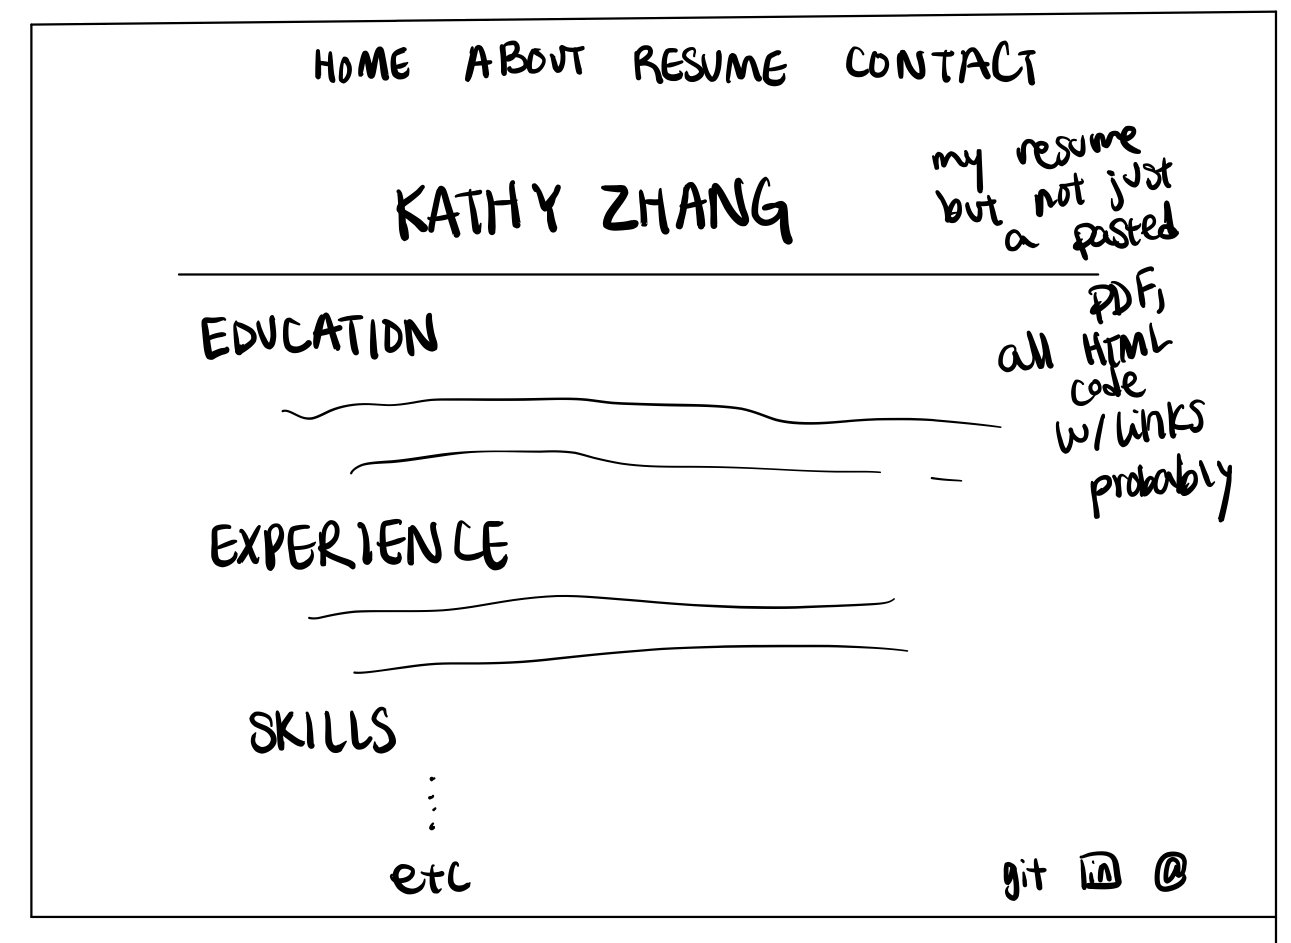 HOME ABOUT RESUME CONTACT
my resume
but not just
a pasted
PDF,
all HTML
code
w/ links
probably
KATHY ZHANG
EDUCATION
EXPERIENCE
SKILLS
etc
git in @